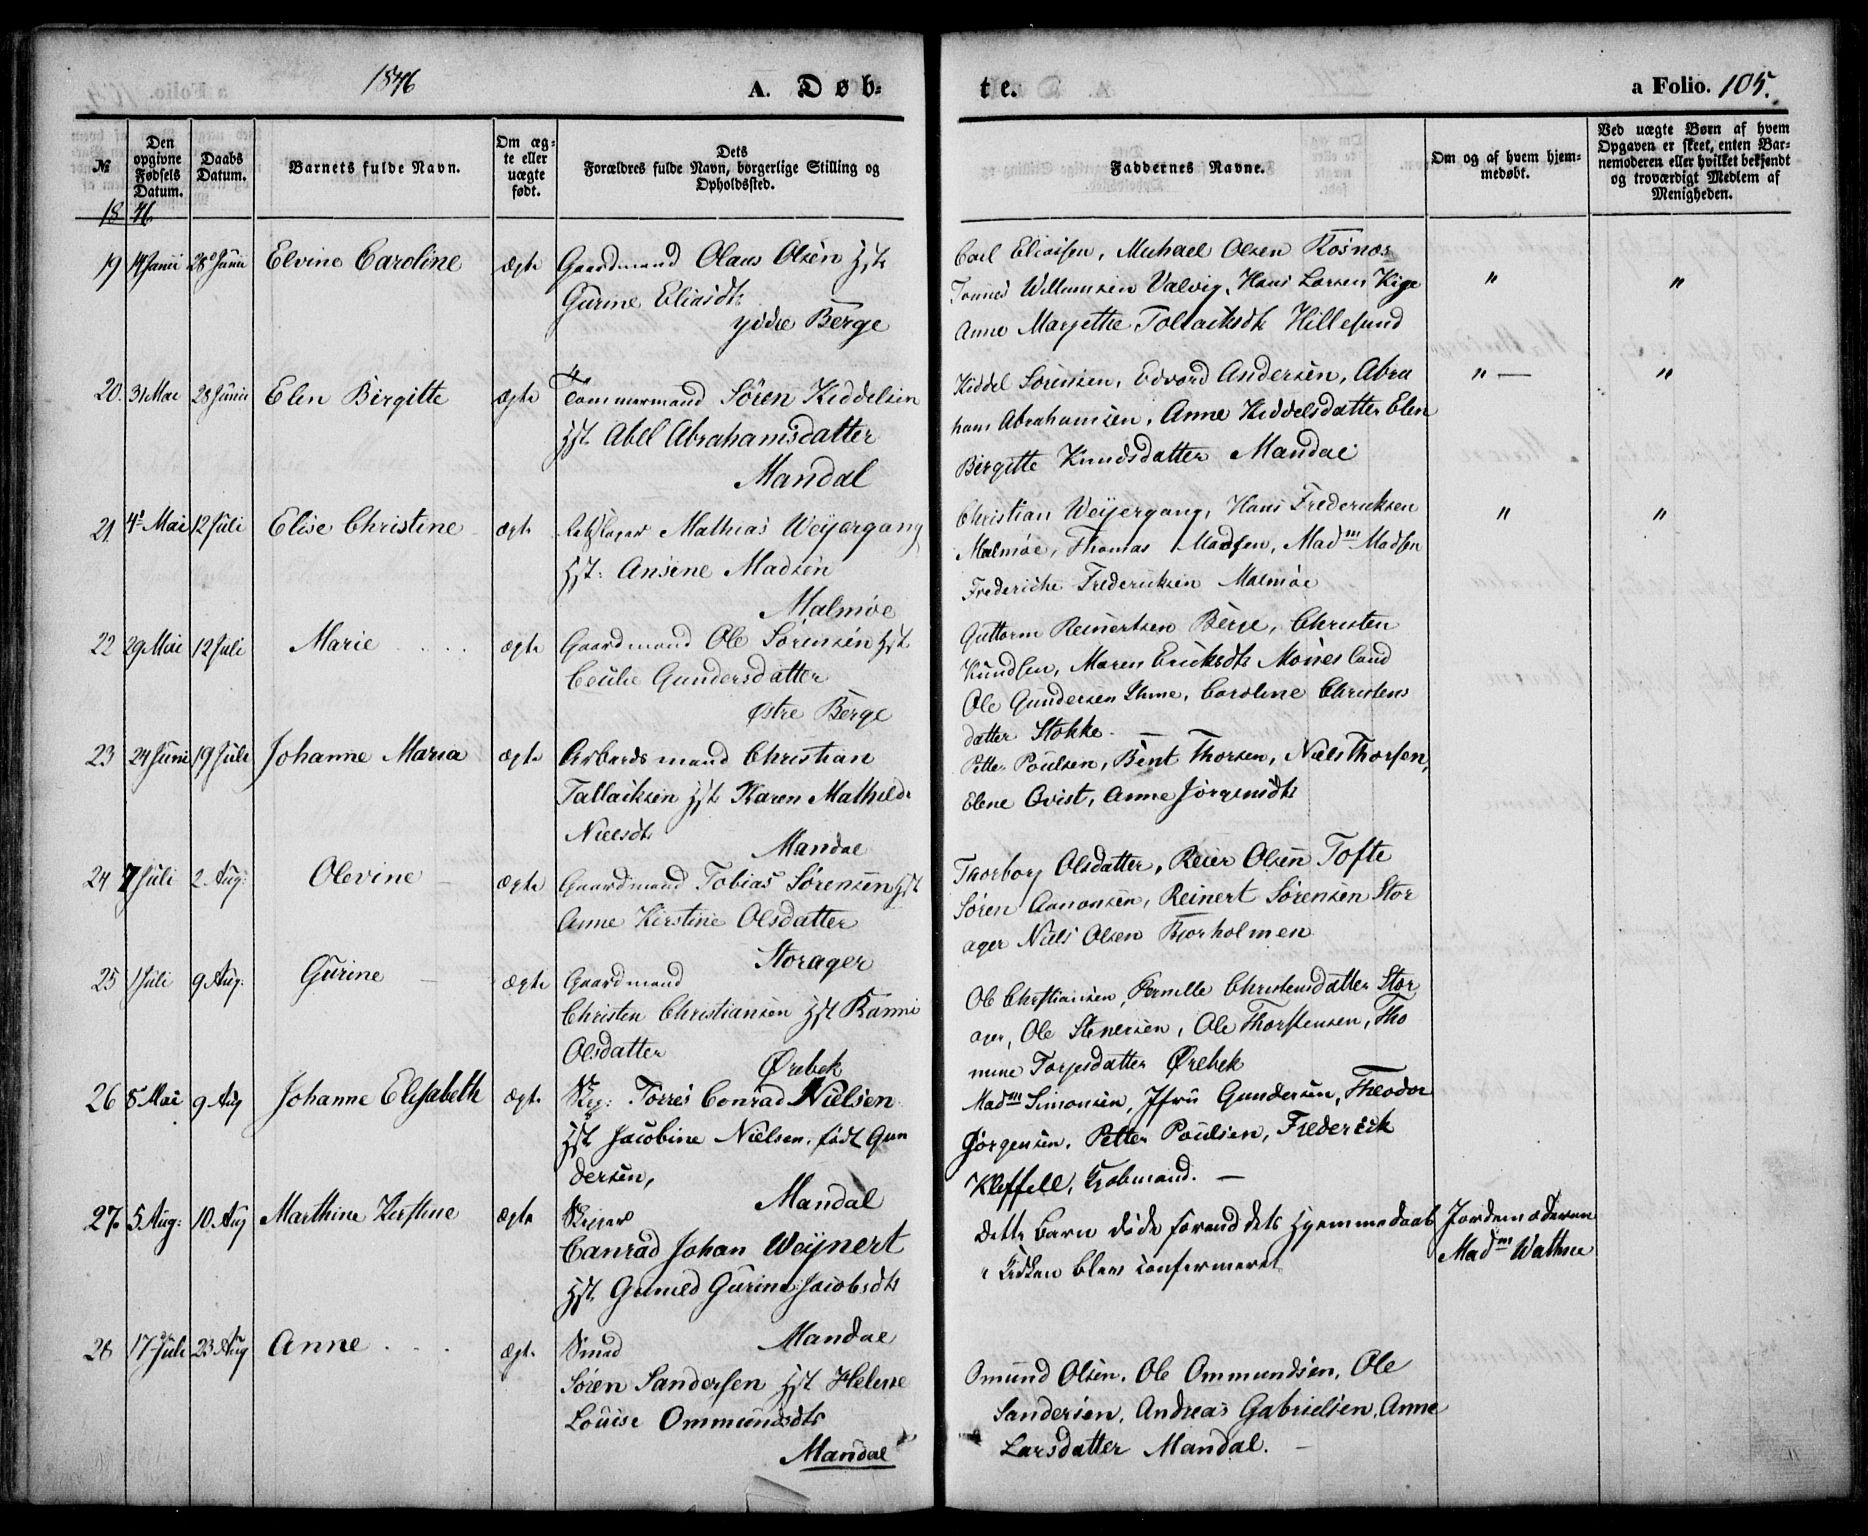 1846
A. Døb-
te.
a Folio. 105.
№
Den opgivne Fødsels Datum.
Daabs Datum.
Barnets fulde Navn.
Om ægte eller uægte født.
Dets Forældres fulde Navn, borgerlige Stilling og Opholdssted.
Faddernes Navne.
Om og af hvem hjemmedøbt.
Ved uægte Børn af hvem Opgaven er skeet, enten Barnemoderen eller hvilket bekjendt og troværdigt Medlem af Menigheden.
1846
19 14 Junii 28 Junii Elvine Caroline ægte Gaardmand Olaus Olsen Hst
Gurine Eliasdt
ydre Berge
Carl Eliassen, Michael Olsen Kosnæs
Tønnes Willumsen Valvig, Hans Larsen Kige " "
Anne Marjethe Tollaksdt Hillesund
20. 31 Mai 28 Junii Elen Birgitte ægte Tømmermand Søren Kiddelsen
Hst. Abel Abrahamsdatter
Mandal
Kiddel Sørensen, Edvard Andersen, Abra " — "
ham Abrahamsen, Anne Kiddelsdatter Elen
Birgitte Knudsdatter Mandal
21. 4 Mai 12 Juli Elise Christine ægte Mathias Weyergang
Hst: Ansine Madsen
Malmøe
Christian Weyergang, Hans Fredericksen " "
Malmøe, Thomas Madsen, Madm Madsen
Frederiche Fredericksen Malmøe
22 29 Mai 12 Juli Marie . . . . ægte Gaardmand Ole Sørensen Hst
Cecilie Gundersdatter
Østre Berge
Guttorm Reinertsen Berge, Christen
Knudsen, Maren Ericksdt Mønesland
Ole Gundersen Ihme, Caroline Christens
datter Stokke. —
23 24 Juni 19 Juli Johanne Maria ægte Arbeidsmand Christian
Tallaksen Hst Karen Mathilde
Nielsdt
Mandal
Petter Poulsen, Bent Thorsen, Niels Thorsen,
Elene Qvist, Anne Jørgensdt
24 7 Juli 2. Aug: Olevine — ægte Gaardmand Tobias Sørensen Hst
Anne Kirstine Olsdatter
Storager
Thorborg Olsdatter, Reier Olsen Tofte
Søren Aanonsen, Reinert Sørensen Stor
ager Niels Olsen Bjorholmen
25 1 Juli 9 Aug: Gurine — ægte Gaardmand
Christen Christiansen Hst Kanni
Olsdatter
Ørebek
Ole Christiansen, Pernille Christensdatter Stor
ager, Ole Stenersen, Ole Thorstensen, Tho
mine Torjesdatter Ørebek
26 8 Mai 9 Aug Johanne Elisabeth ægte Skp: Torres Conrad Nielsen
Hst Jacobine Nielsen, født Gun
dersen,
Mandal
Madm Simonsen, Jfru Gundersen, Theodor
Jørgensen, Petter Poulsen, Frederik
Kleffell, Kobmand. —
27. 5 Aug: 10 Aug Marthine Kirstine ægte Skipper
Conrad Johan Weynert
Hst Gunild Gurine Jacobsdt
Mandal
dette Barn døde forend dets Hjemmedaab
i Kirken blev confermeret
Jordemoderen
Madm Wathne
28 17 Juli 23 Aug Anne . . . ægte Smed
Søren Sandersen Hst Helene
Louise Ommundsdt
Mandal
Omund Olsen, Ole Ommundsen, Ole
Sandersen, Andreas Gabrielsen, Anne
Larsdatter Mandal. —